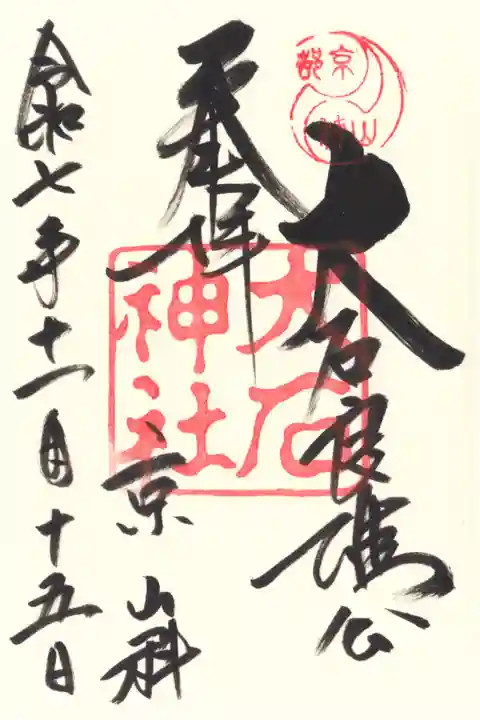 大石良雄公
奉拝
京
山科
令和七年十一月十五日
京都
山科
大石
神社